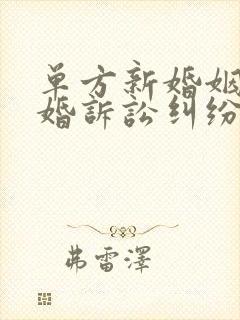 单方新婚姻
婚訴訟纠纷
弗雷澤